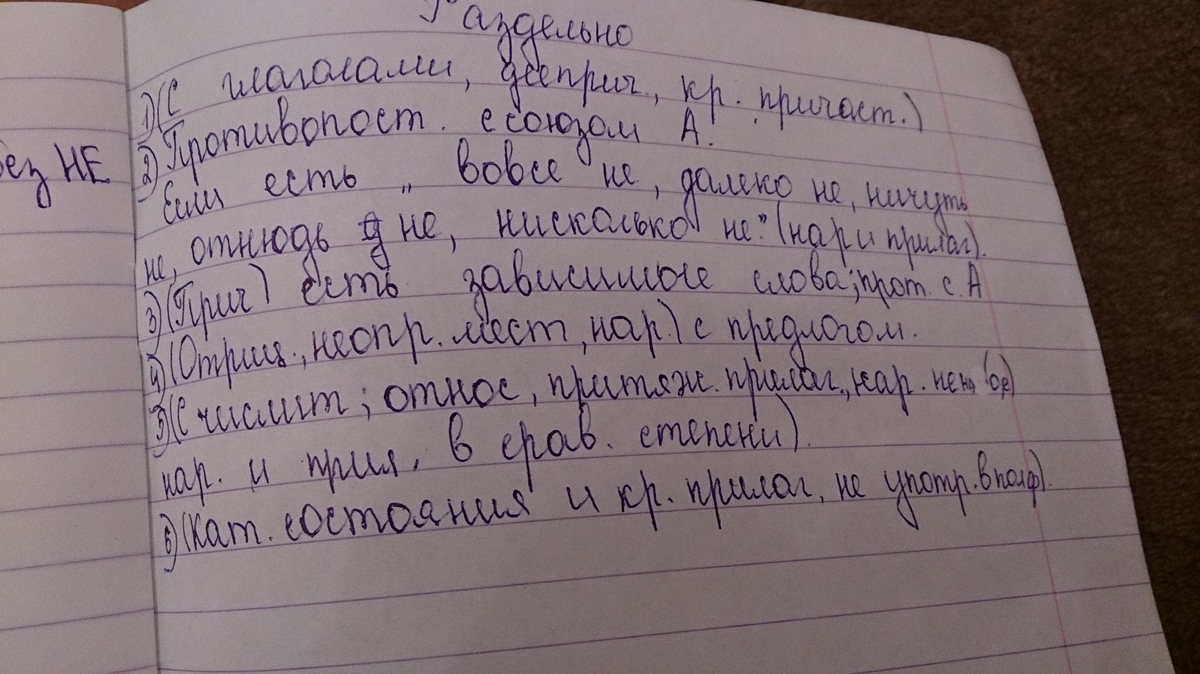 Раздельно
1) (С глаголами, дееприч., кр. причаст.)
без НЕ
2) Противопост. с союзом А.
Если есть „ вовсе не, далеко не, ничуть
не, отнюдь не, нисколько не" (нар и прилаг).
3) (Прич) есть зависимые слова; прот. с А
4) (Отриц., неопр. мест, нар.) с предлогом.
5) (С числит; относ, притяж. прилаг., нар. не на (о,е)
нар. и прил, в срав. степени).
6) (Кат. состояния и кр. прилаг, не употр. в полф).